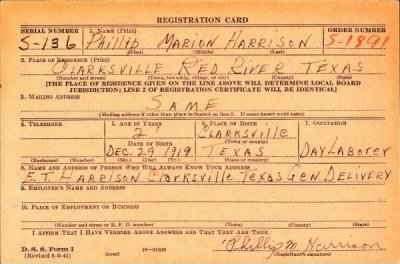 REGISTRATION CARD
SERIAL NUMBER 1. NAME (Print) ORDER NUMBER
S-136 Phillip MARION HARRISON S-1891
(First) (Middle) (Last)
2. PLACE OF RESIDENCE (Print)
CLARKSVILLE RED RIVER TEXAS
(Number and street) (Town, township, village, or city) (County) (State)
[THE PLACE OF RESIDENCE GIVEN ON THE LINE ABOVE WILL DETERMINE LOCAL BOARD
JURISDICTION; LINE 2 OF REGISTRATION CERTIFICATE WILL BE IDENTICAL]
3. MAILING ADDRESS
SAME
[Mailing address if other than place indicated on line 2. If same insert word same]
4. TELEPHONE 5. AGE IN YEARS 6. PLACE OF BIRTH 7. OCCUPATION
2 CLARKSVILLE
DATE OF BIRTH (Town or county)
DEC 29 1919 TEXAS DAY LABORER
(Exchange) (Number) (Mo.) (Day) (Yr.) (State or country)
8. NAME AND ADDRESS OF PERSON WHO WILL ALWAYS KNOW YOUR ADDRESS
E.J. HARRISON CLARKSVILLE TEXAS GEN. DELIVERY
9. EMPLOYER'S NAME AND ADDRESS
10. PLACE OF EMPLOYMENT OR BUSINESS
(Number and street or R. F. D. number) (Town) (County) (State)
I AFFIRM THAT I HAVE VERIFIED ABOVE ANSWERS AND THAT THEY ARE TRUE.
D. S. S. Form 1 Phillip M. Harrison
(Revised 6-9-41) (over) 16-21630 (Registrant's signature)